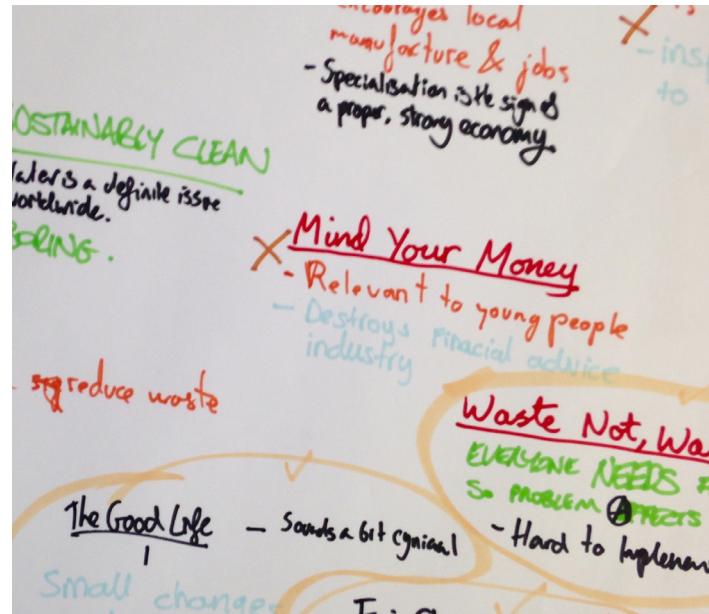 encourages local
manufacture & jobs
- Specialisation is the sign of
a proper, strong economy.
- insp
to
SUSTAINABLY CLEAN
Water is a definite issue
worldwide.
BORING.
Mind Your Money
- Relevant to young people
- Destroys Finacial advice
industry
reduce waste
Waste Not, Wa
EVERYONE NEEDS F
SO PROBLEM AFFECTS
- Hard to Implemen
The Good Life - Sounds a bit cynical
Small change